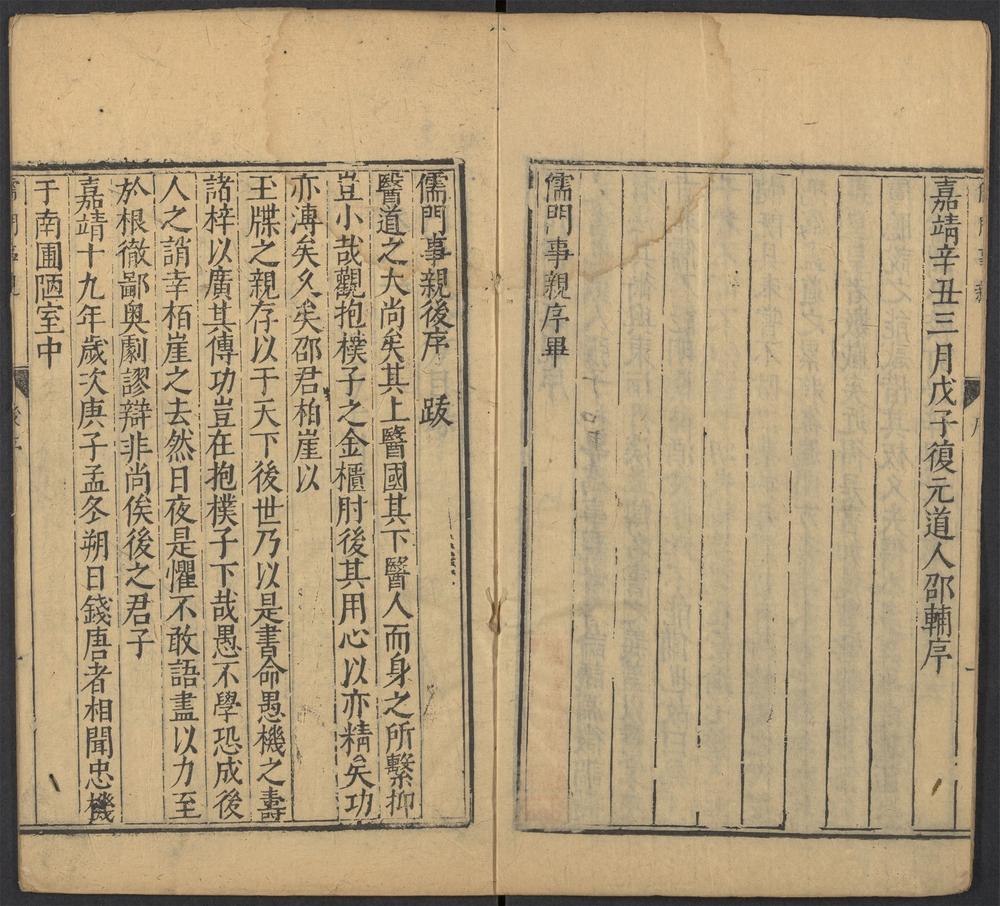 嘉靖辛丑三月戊子復元道人邵輔序
儒門事親序畢
儒門事親後序 跋
醫道之大尚矣其上醫國其下醫人而身之所繫抑
豈小哉觀抱樸子之金櫃肘後其用心以亦精矣功
亦溥矣久矣邵君柏崖以
王牒之親存以于天下後世乃以是書命愚機之壽
諸梓以廣其傳功豈在抱樸子下哉愚不學恐成後
人之誚幸栢崖之去然日夜是懼不敢語盡以力至
於根徹鄙奥劇謬辯非尚俟後之君子
嘉靖十九年歲次庚子孟冬朔日錢唐者相聞忠機
于南圃陋室中